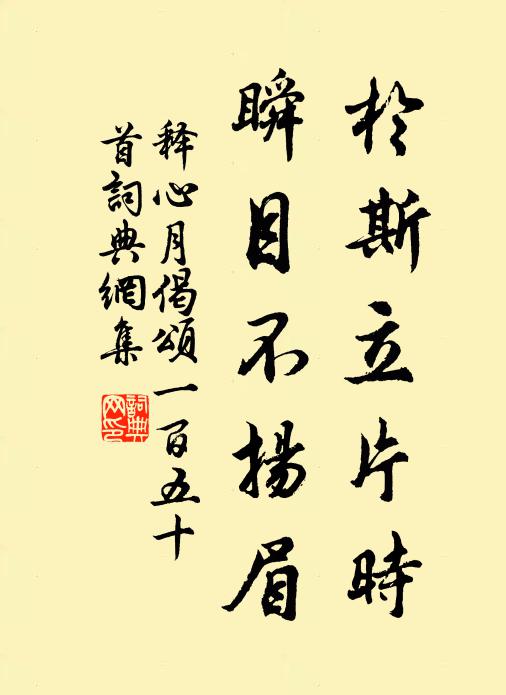 於斯立片時
瞬目不揚眉
释心月偈頌一百五十
首詞典網集
詞典
网印